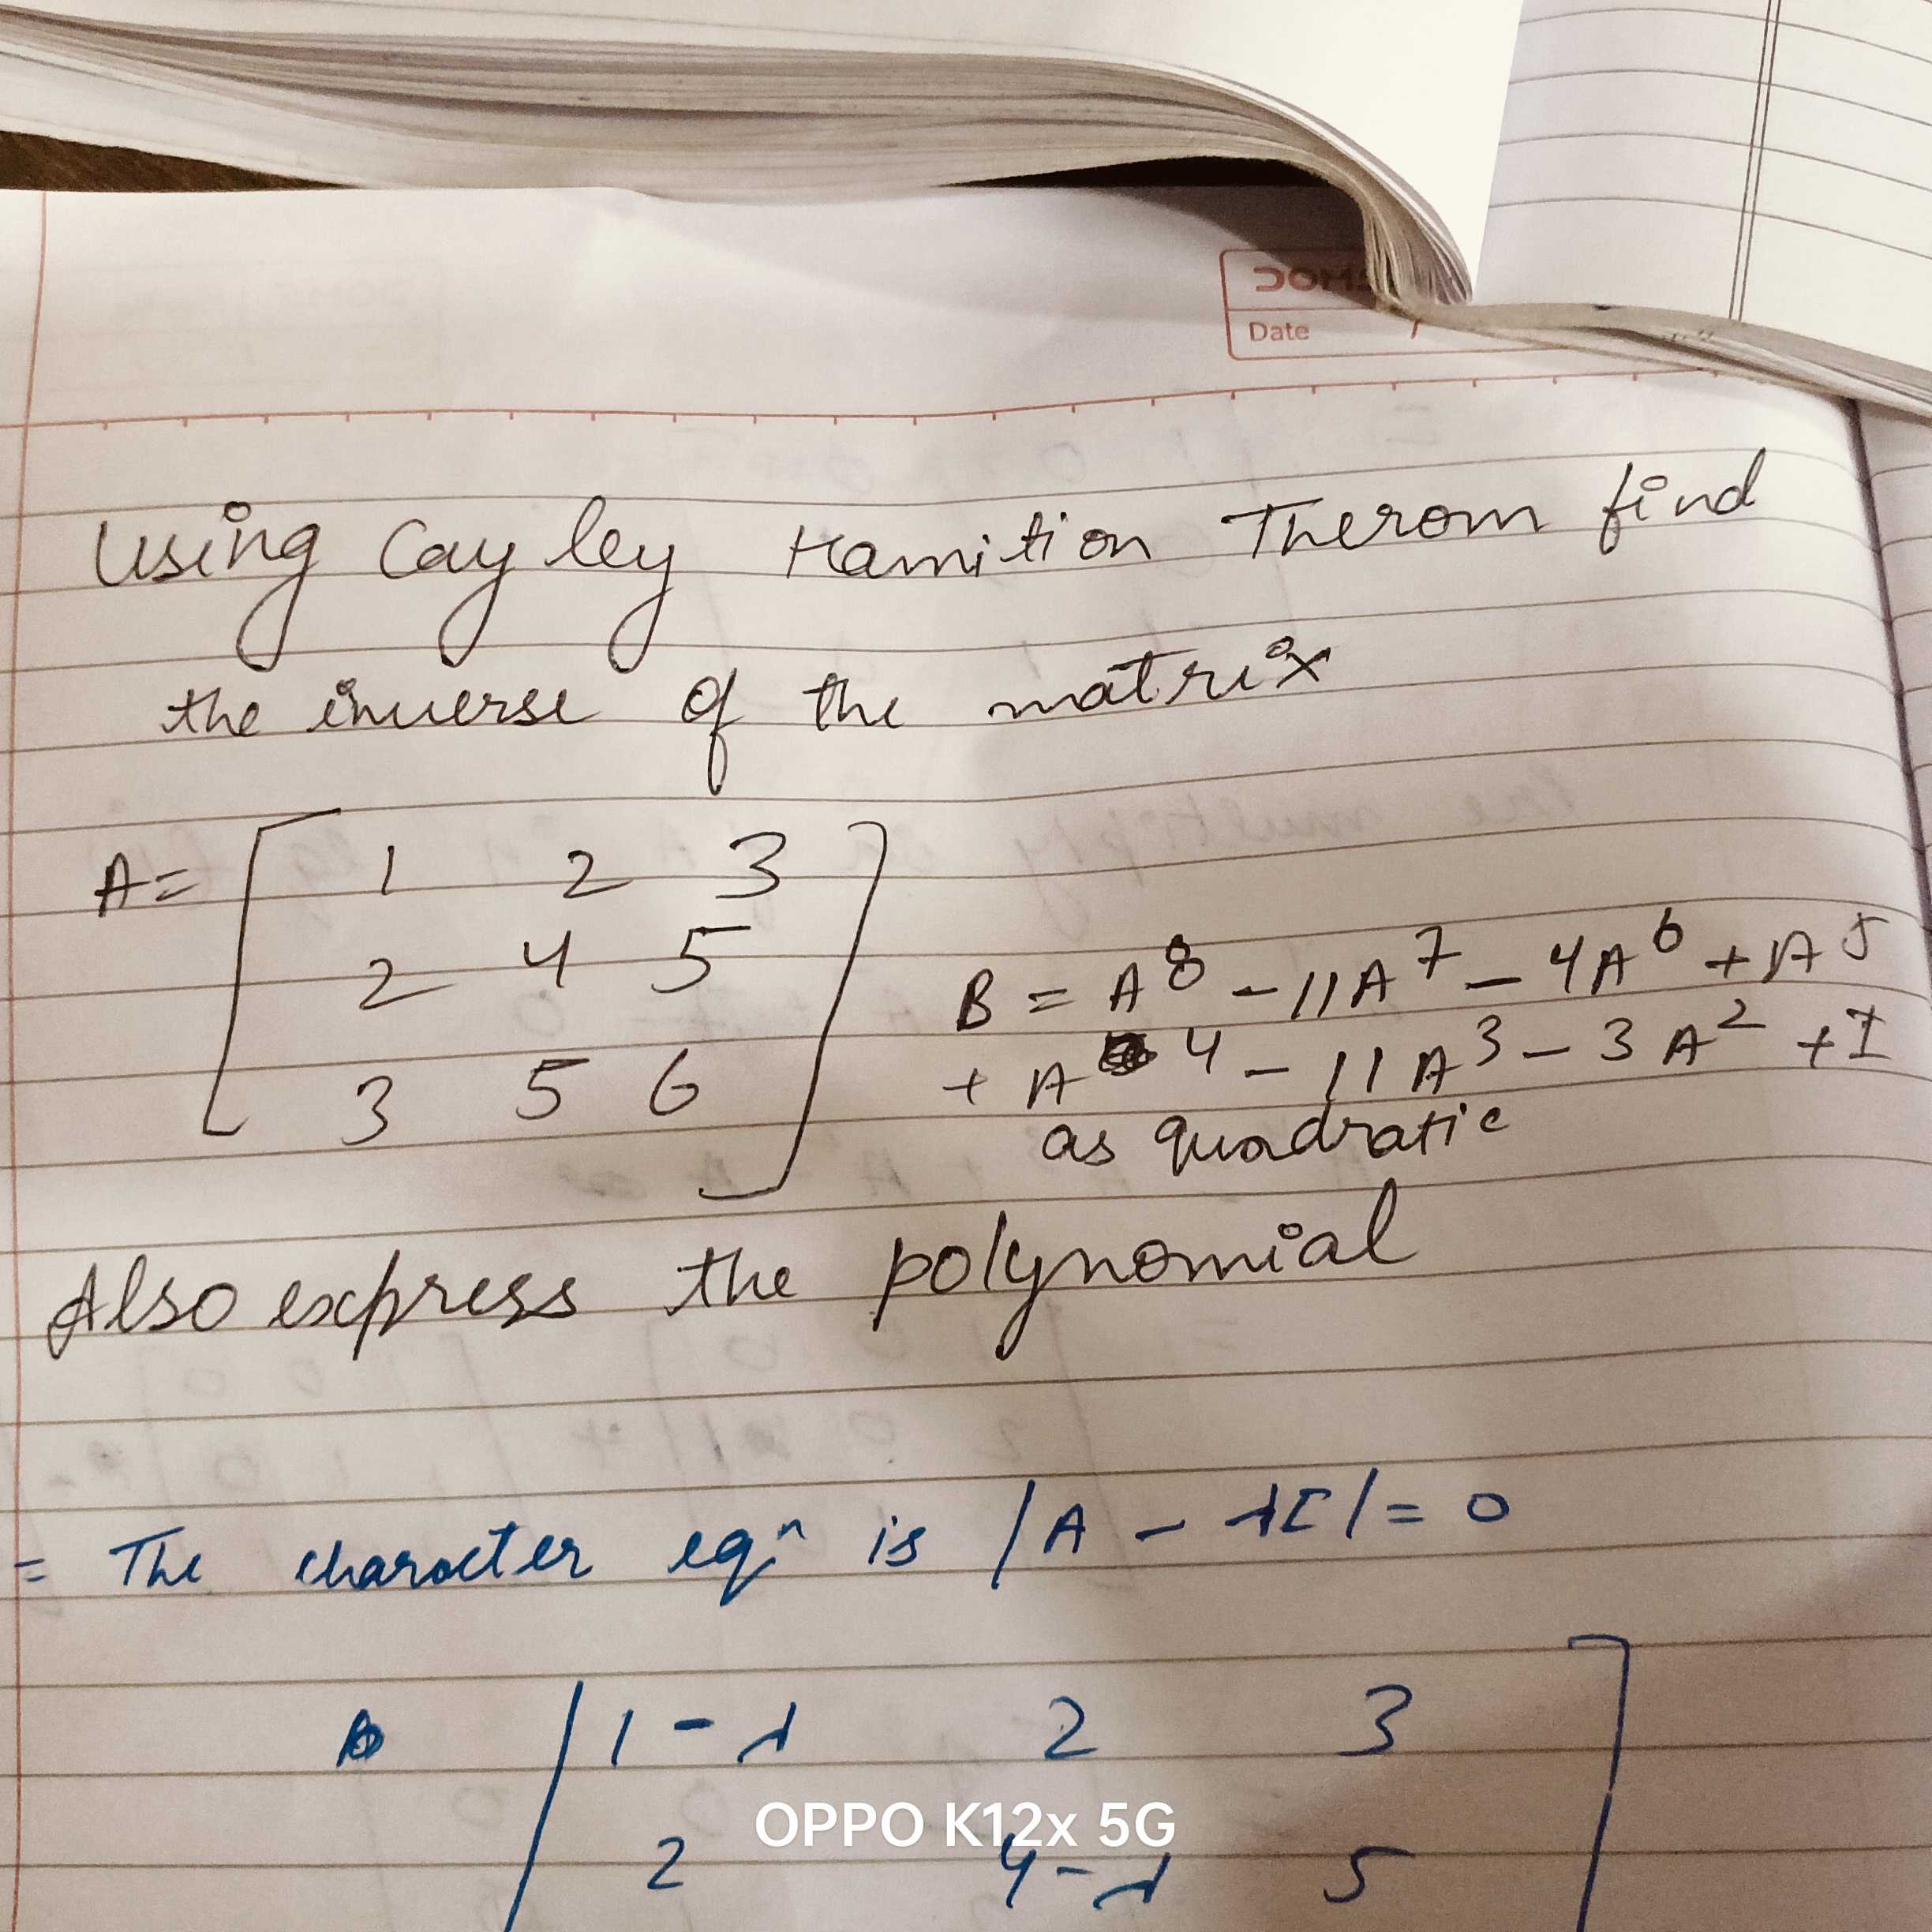 DOMS
Date
Using Cayley Hamition Therom find
the inverse of the matrix
A = [ 1 2 3
2 4 5
3 5 6 ]
B = A⁸ - 11A⁷ - 4A⁶ + A⁵
+ A⁴ - 11A³ - 3A² + I
as quadratic
Also express the polynomial
= The character eqⁿ is |A - λI| = 0
| 1-λ 2 3 ]
2 4-λ 5
OPPO K12x 5G